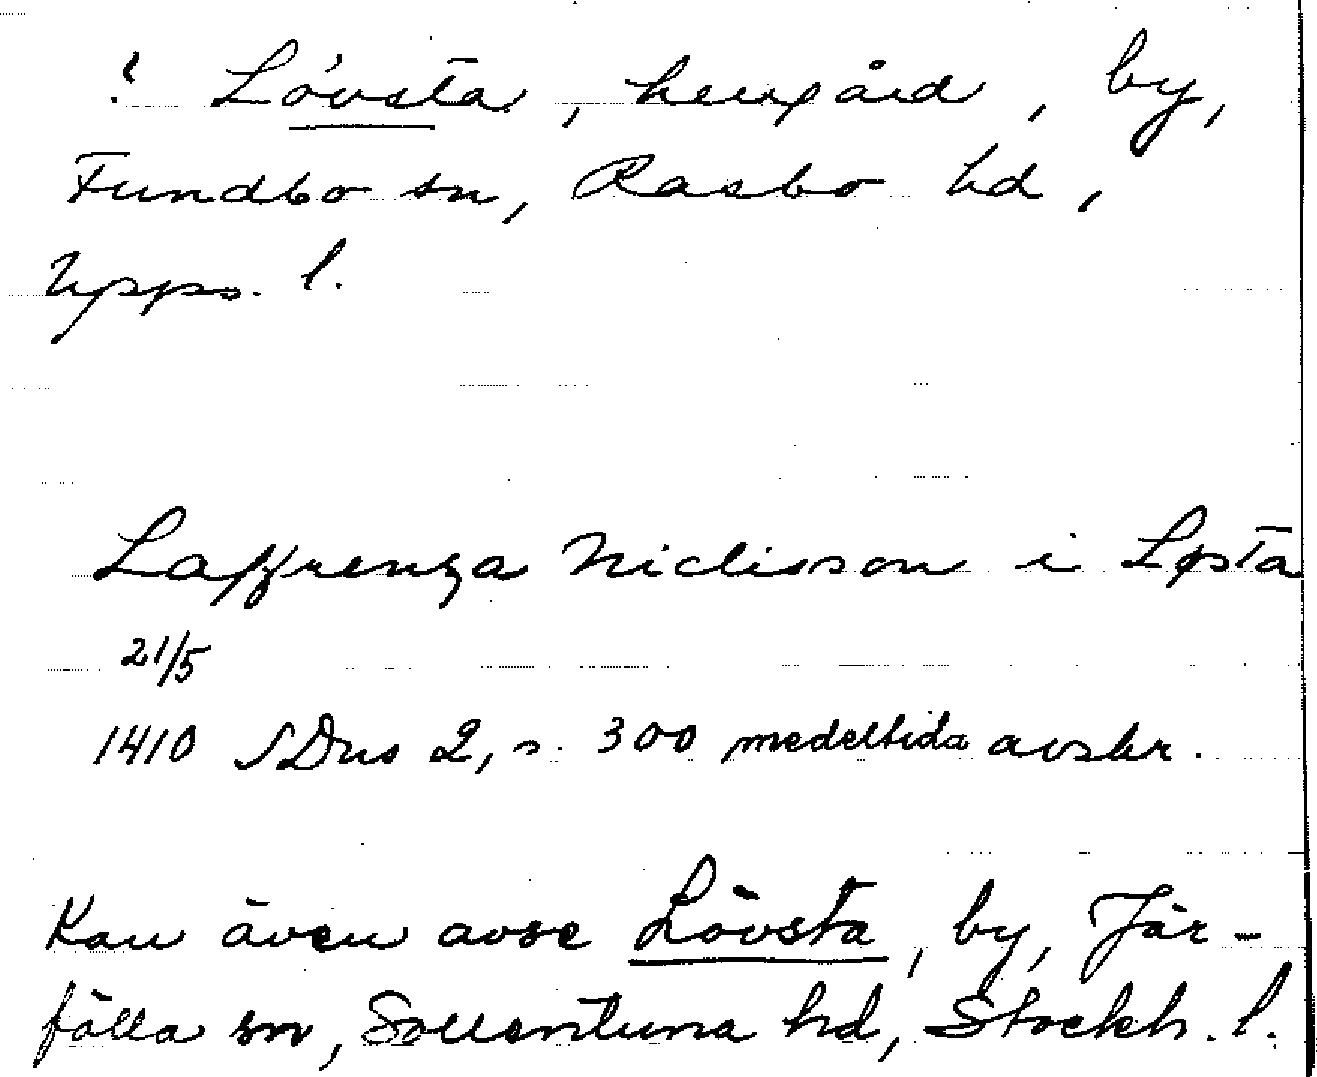 ? Lövsta, herrgård, by,
Fundbo sn, Rasbo hd,
Upps. l.
Laffrenza Niclisson i Løsta
21/5
1410 SDns 2, s. 300 medeltida avskr.
Kan även avse Lövsta, by, Jär-
fälla sn, Sollentuna hd, Stockh. l.